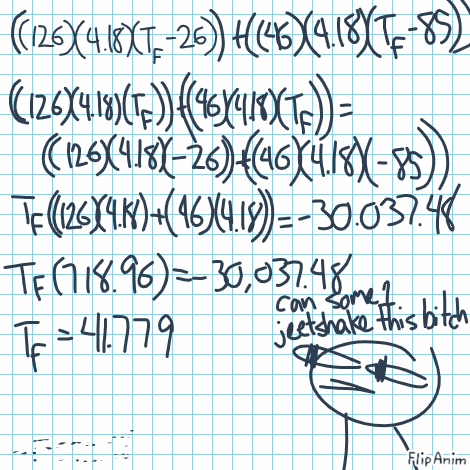 ((126)(4.18)(TF-26))+((46)(4.18)(TF-85))
((126)(4.18)(TF))+((46)(4.18)(TF))=
((126)(4.18)(-26))+((46)(4.18)(-85))
TF((126)(4.18)+(46)(4.18))=-30.037.48
TF(718.96)=-30,037.48
TF=41.779
can some1
jeetshake this bitch
FlipAnim